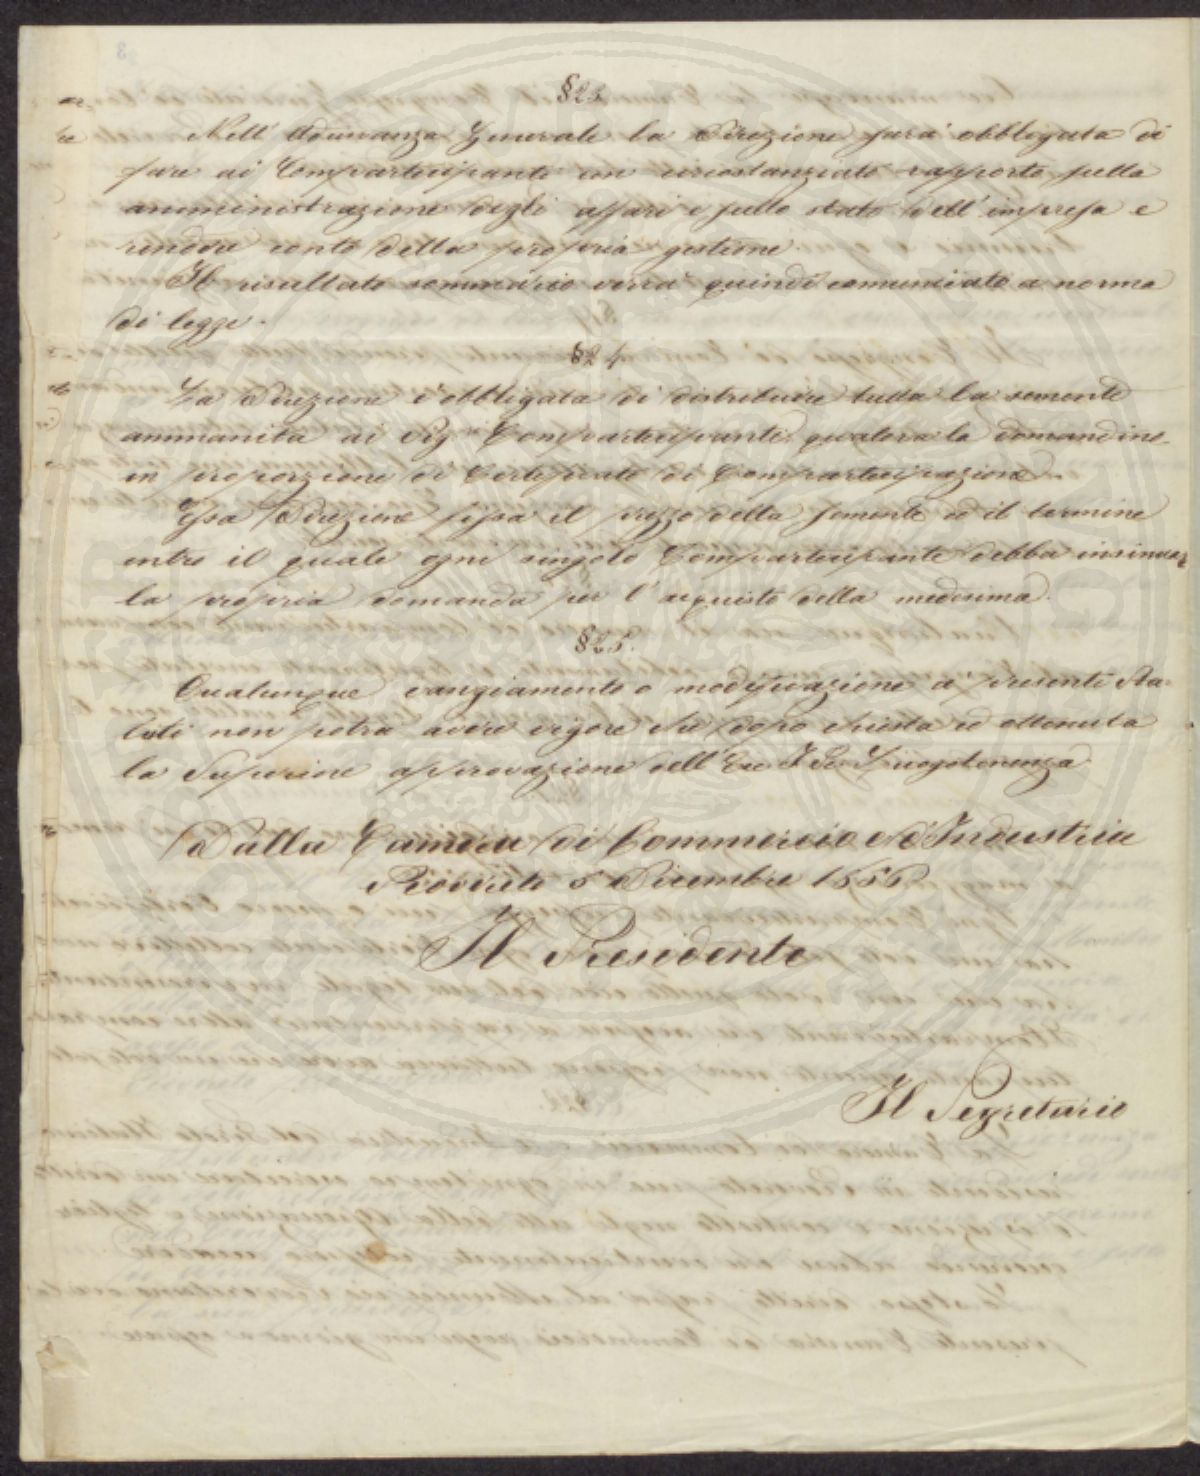 §23.
Nell' Adunanza Generale la Direzione sarà obbligata di
fare ai Compartecipanti un circostanziato rapporto sulla
amministrazione degli affari e sullo stato dell'impresa e
rendere conto della propria gestione
Il risultato sommario verrà quindi comunicato a norma
di legge.
§24
La Direzione è obbligata di distribuire tutta la semente
ammanita ai Sigri Compartecipanti qualora la domandino
in proporzione di Certificato di Compartecipazione.
Essa Direzione fissa il prezzo della semente ed il termine
entro il quale ogni singolo Compartecipante debba insinuar
la propria domanda per l'acquisto della medesima.
§25.
Qualunque cangiamento o modificazione a' presenti Sta-
tuti non potrà avere vigore che dopo chiesta ed ottenuta
la Superiore approvazione dell'Ecc. I. R. Luogotenenza
Dalla Camera di Commercio e d'Industria
Rovereto 5 Dicembre 1856
Il Presidente
Il Segretario